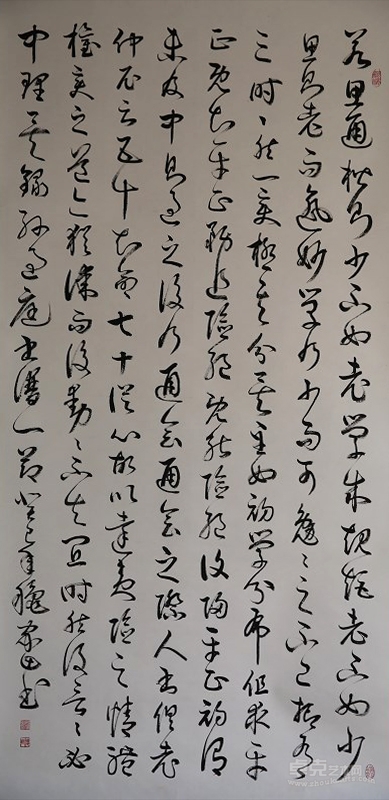 若思通楷則少不如老學成規矩老不如少
思則老而逾妙學乃少而可勉々之不已抑有
三時々然一變極其分矣至如初學分布但求平
正既知平正務追險絕既能險絕復歸平正初謂
未及中則過之後乃通會通會之際人書俱老
仲尼云五十知命七十從心故以達夷險之情體
權變之道亦猶謀而後動々不失宜時然後言々必
中理矣錄孫過庭書譜一節癸巳年穐書
卓克艺术网